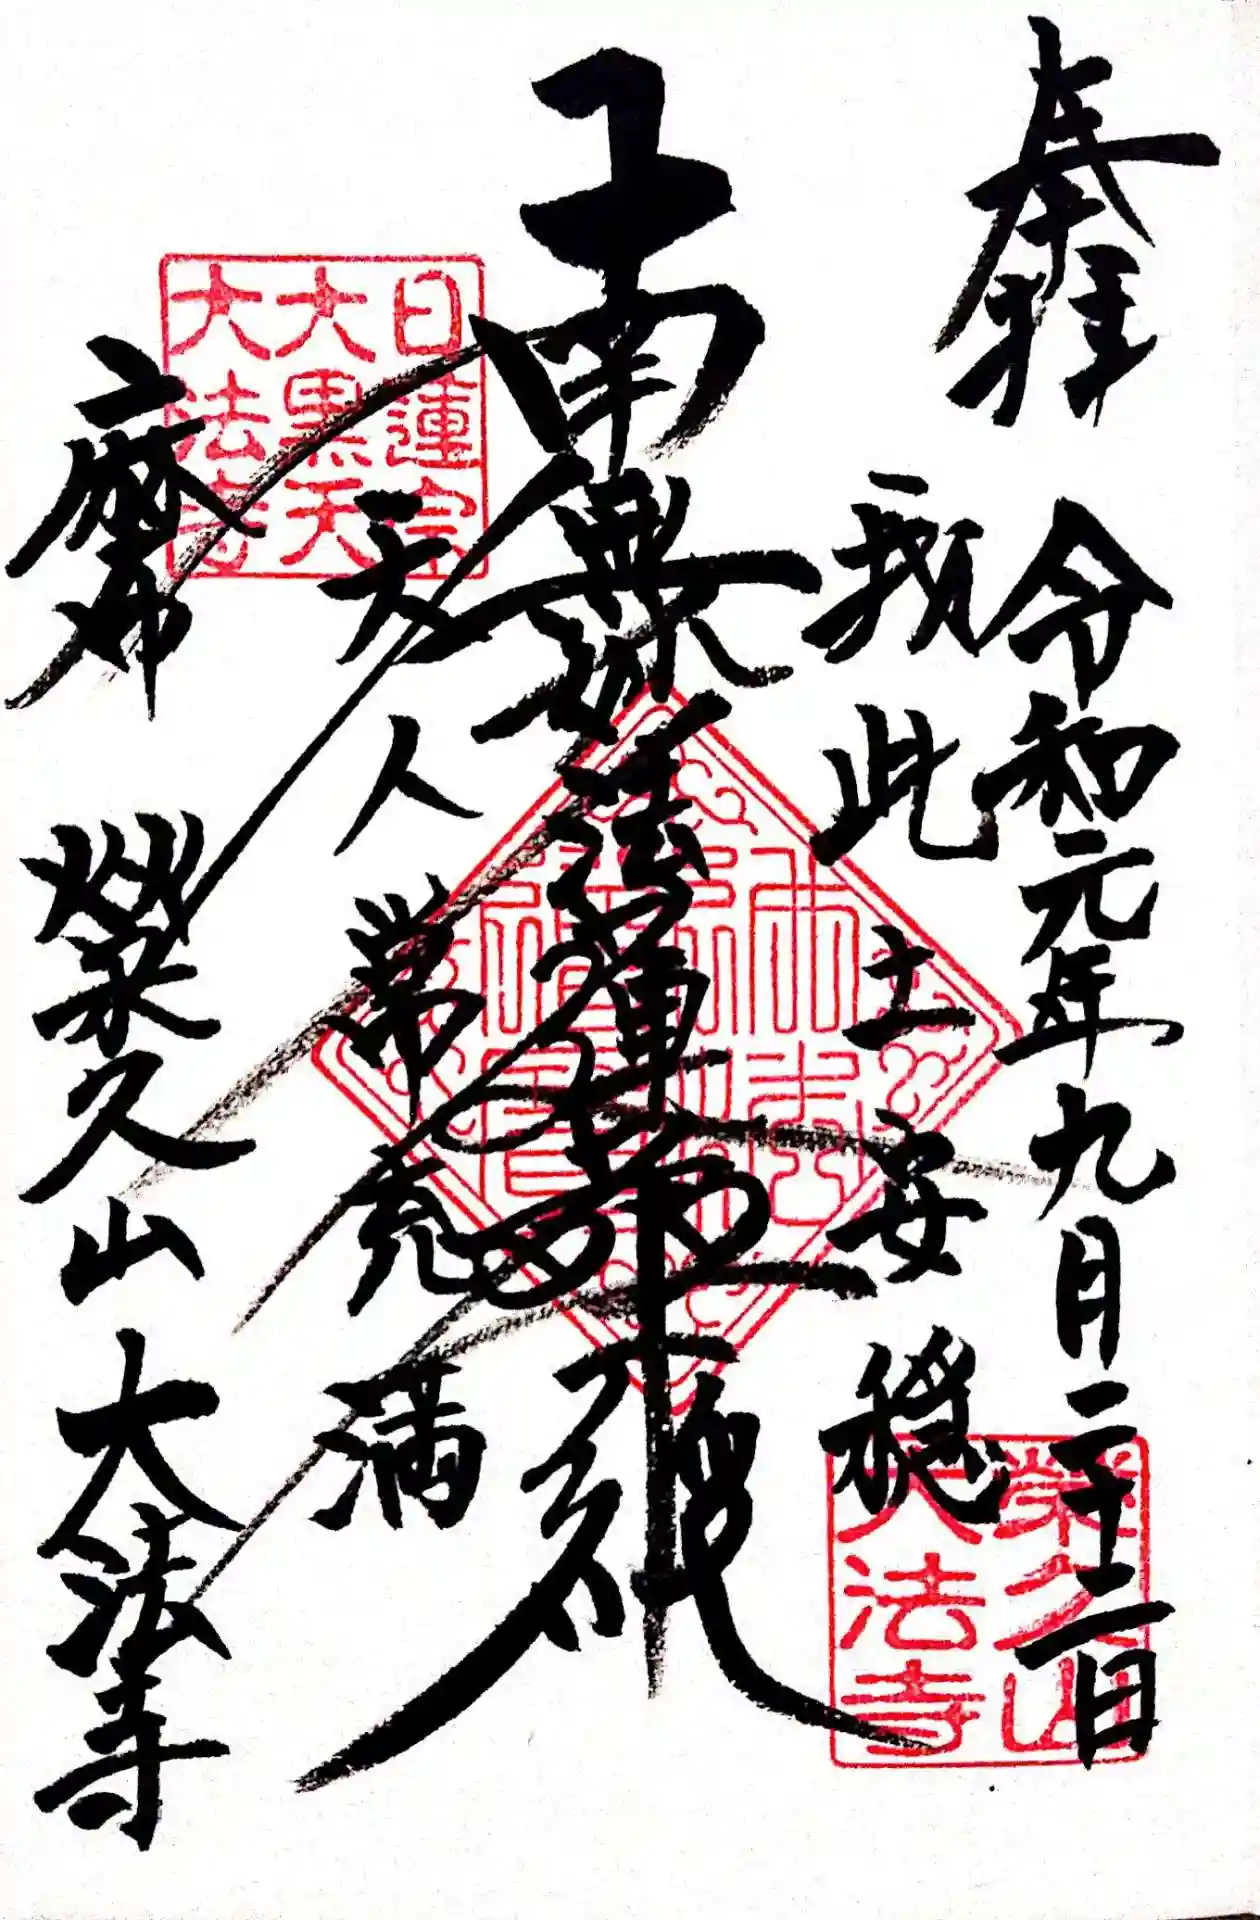 奉拝
令和元年九月二十二日
我此土安穏
南無妙法蓮華経
天人常充満
麻布
榮久山
大法寺
日蓮宗
大黒天
大法寺
榮久山
大法寺